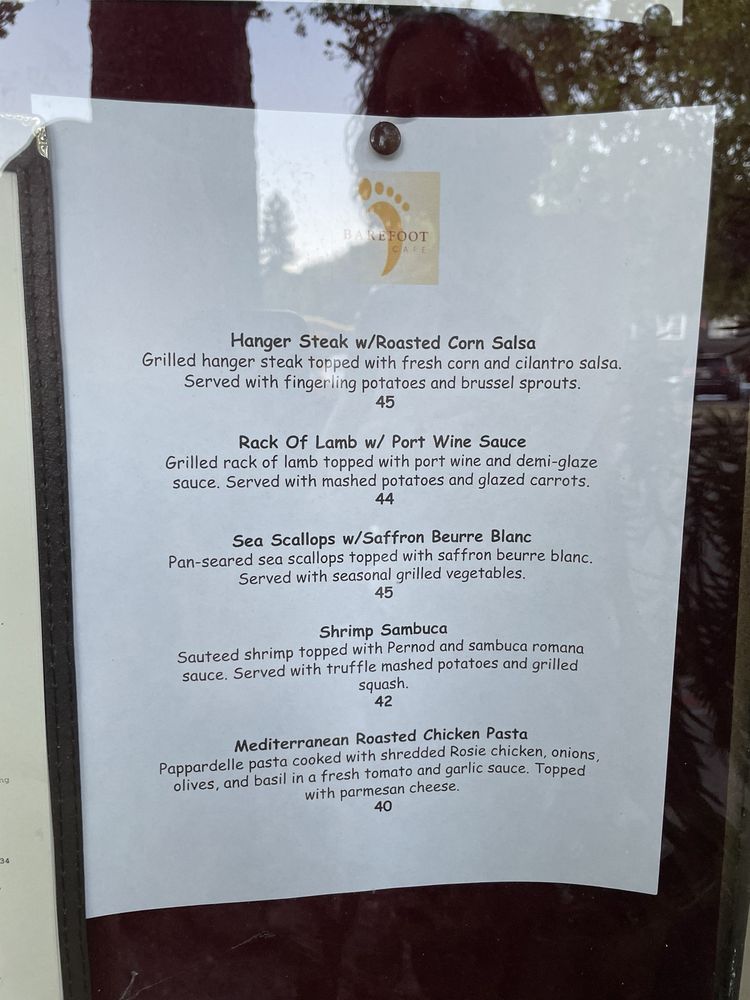 BAREFOOT
CAFE
Hanger Steak w/Roasted Corn Salsa
Grilled hanger steak topped with fresh corn and cilantro salsa.
Served with fingerling potatoes and brussel sprouts.
45
Rack Of Lamb w/ Port Wine Sauce
Grilled rack of lamb topped with port wine and demi-glaze
sauce. Served with mashed potatoes and glazed carrots.
44
Sea Scallops w/Saffron Beurre Blanc
Pan-seared sea scallops topped with saffron beurre blanc.
Served with seasonal grilled vegetables.
45
Shrimp Sambuca
Sauteed shrimp topped with Pernod and sambuca romana
sauce. Served with truffle mashed potatoes and grilled
squash.
42
Mediterranean Roasted Chicken Pasta
Pappardelle pasta cooked with shredded Rosie chicken, onions,
olives, and basil in a fresh tomato and garlic sauce. Topped
with parmesan cheese.
40
ng
34